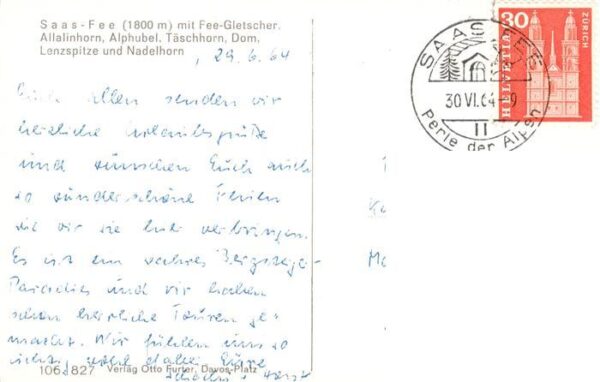 Saas-Fee (1800 m) mit Fee-Gletscher.
Allalinhorn, Alphubel, Täschhorn, Dom,
Lenzspitze und Nadelhorn
29.6.64
Euch allen senden wir
herzliche Urlaubsgrüße
und wünschen Euch auch
so wunderschöne Ferien
wie wir sie hier verbringen.
Es ist ein wahres Bergsteiger-
Paradies und wir haben
schon herrliche Touren ge-
macht. Wir fühlen uns so
richtig wohl dabei Eure
Horst
106.827 Verlag Otto Furter, Davos-Platz
SAAS-FEE
30.VI.64-9
11
Perle der Alpen
30
HELVETIA
ZÜRICH